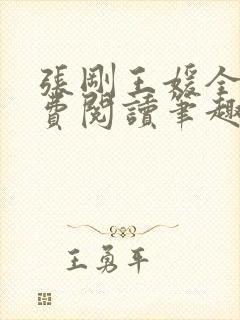 張剛王媛全
費閱讀筆趣
王勇平